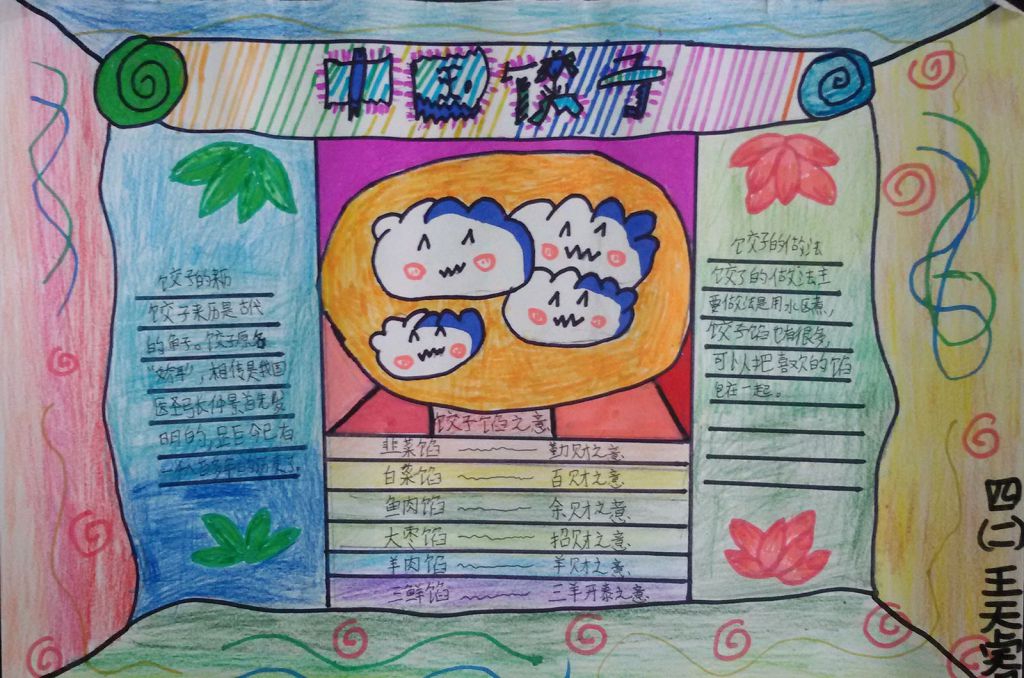 中国饺子
饺子的来历
饺子来历是古代
的角子。饺子原名
"娇耳"，相传是我国
医圣张仲景首先发
明的，距今已有
一千八百多年的历史了。
饺子馅之意
韭菜馅 勤财之意
白菜馅 百财之意
鱼肉馅 余财之意
大枣馅 招财之意
羊肉馅 羊财之意
三鲜馅 三羊开泰之意
饺子的做法
饺子的做法主
要做法是用水区煮，
饺子馅也有很多，
可以把喜欢的馅
包在一起。
四(二)王天